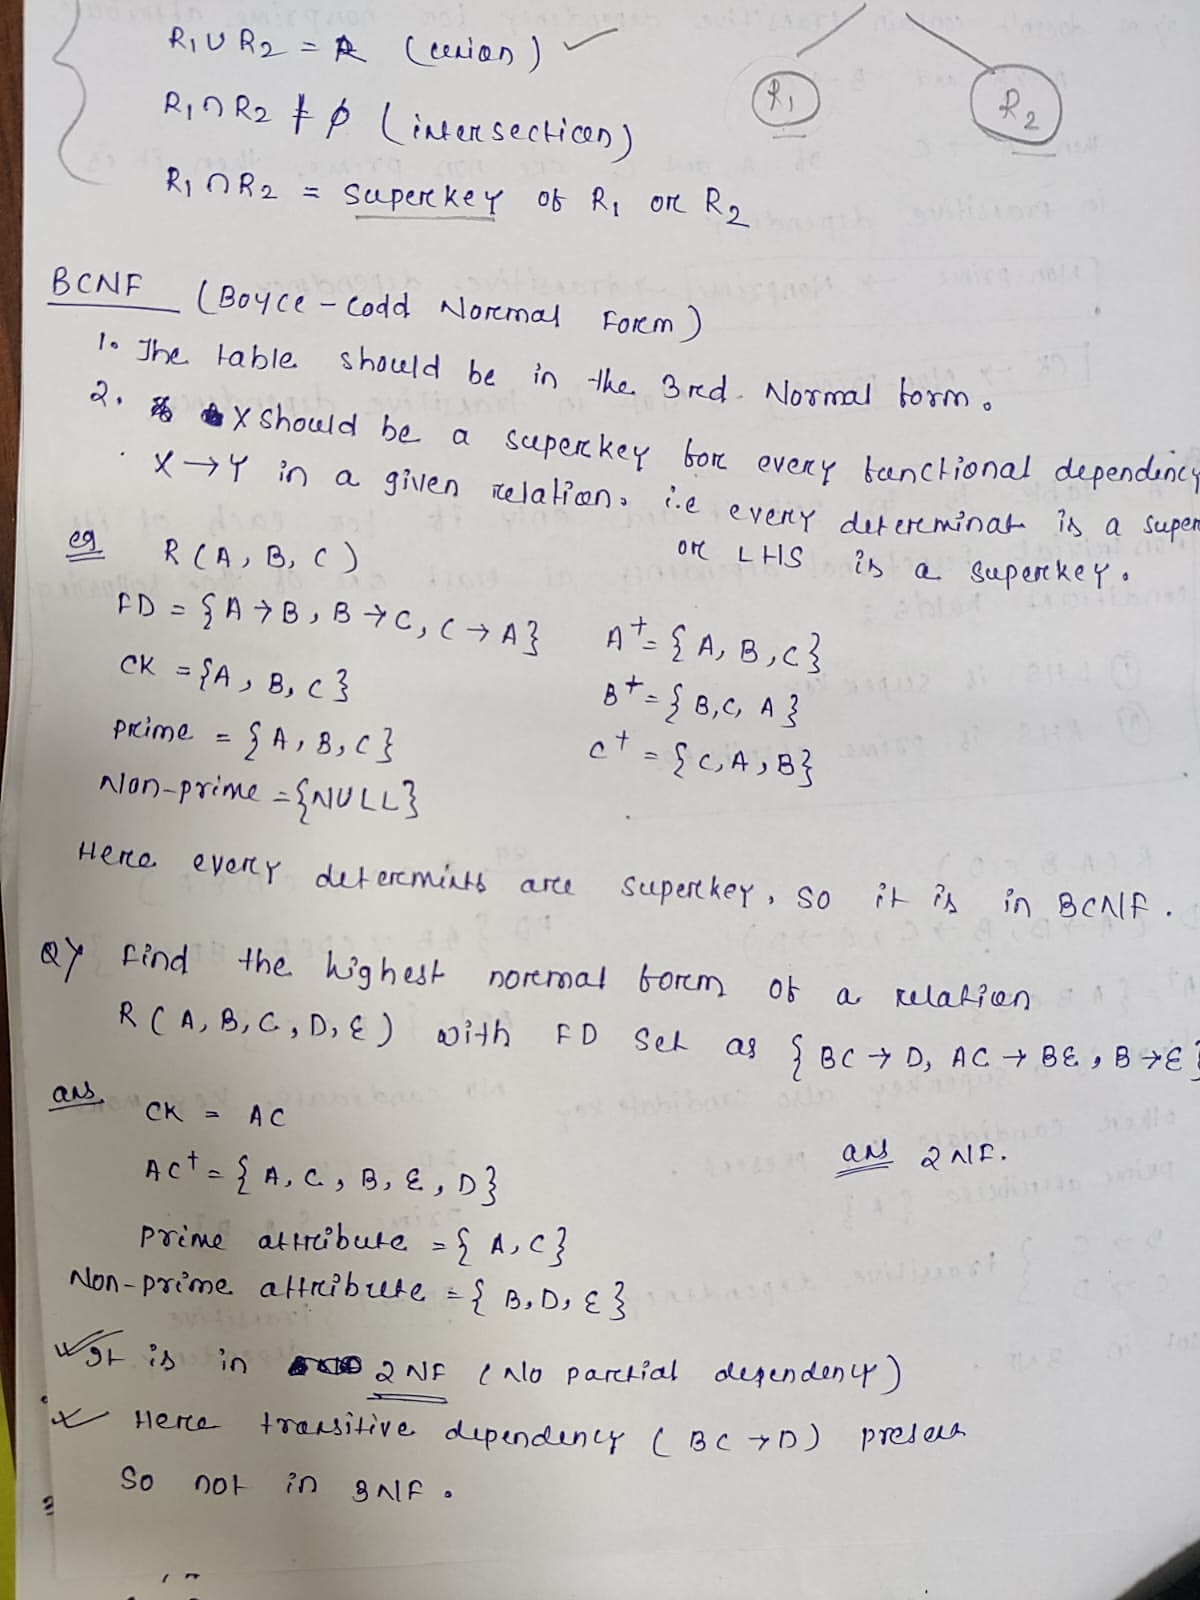 R1 ∪ R2 = R (union) ✓
R1 ∩ R2 ≠ ϕ (intersection)
R1 ∩ R2 = Superkey of R1 or R2
R1
R2
BCNF (Boyce-Codd Normal Form)
1. The table should be in the 3rd Normal form.
2. X should be a superkey for every functional dependency
X → Y in a given relation. i.e every determinat is a super
or LHS is a superkey.
eg R(A, B, C)
FD = {A → B, B → C, C → A}
A+ = {A, B, C}
CK = {A, B, C}
B+ = {B, C, A}
Prime = {A, B, C}
C+ = {C, A, B}
Non-prime = {NULL}
Here every determints are superkey, so it is in BCNF.
Q) Find the highest normal form of a relation
R(A, B, C, D, E) with FD set as {BC → D, AC → BE, B → E}
ans CK = AC
ans 2NF.
AC+ = {A, C, B, E, D}
Prime attribute = {A, C}
Non-prime attribute = {B, D, E}
It is in 2NF (No partial dependency)
Here transitive dependency (BC → D) present
So not in 3NF.